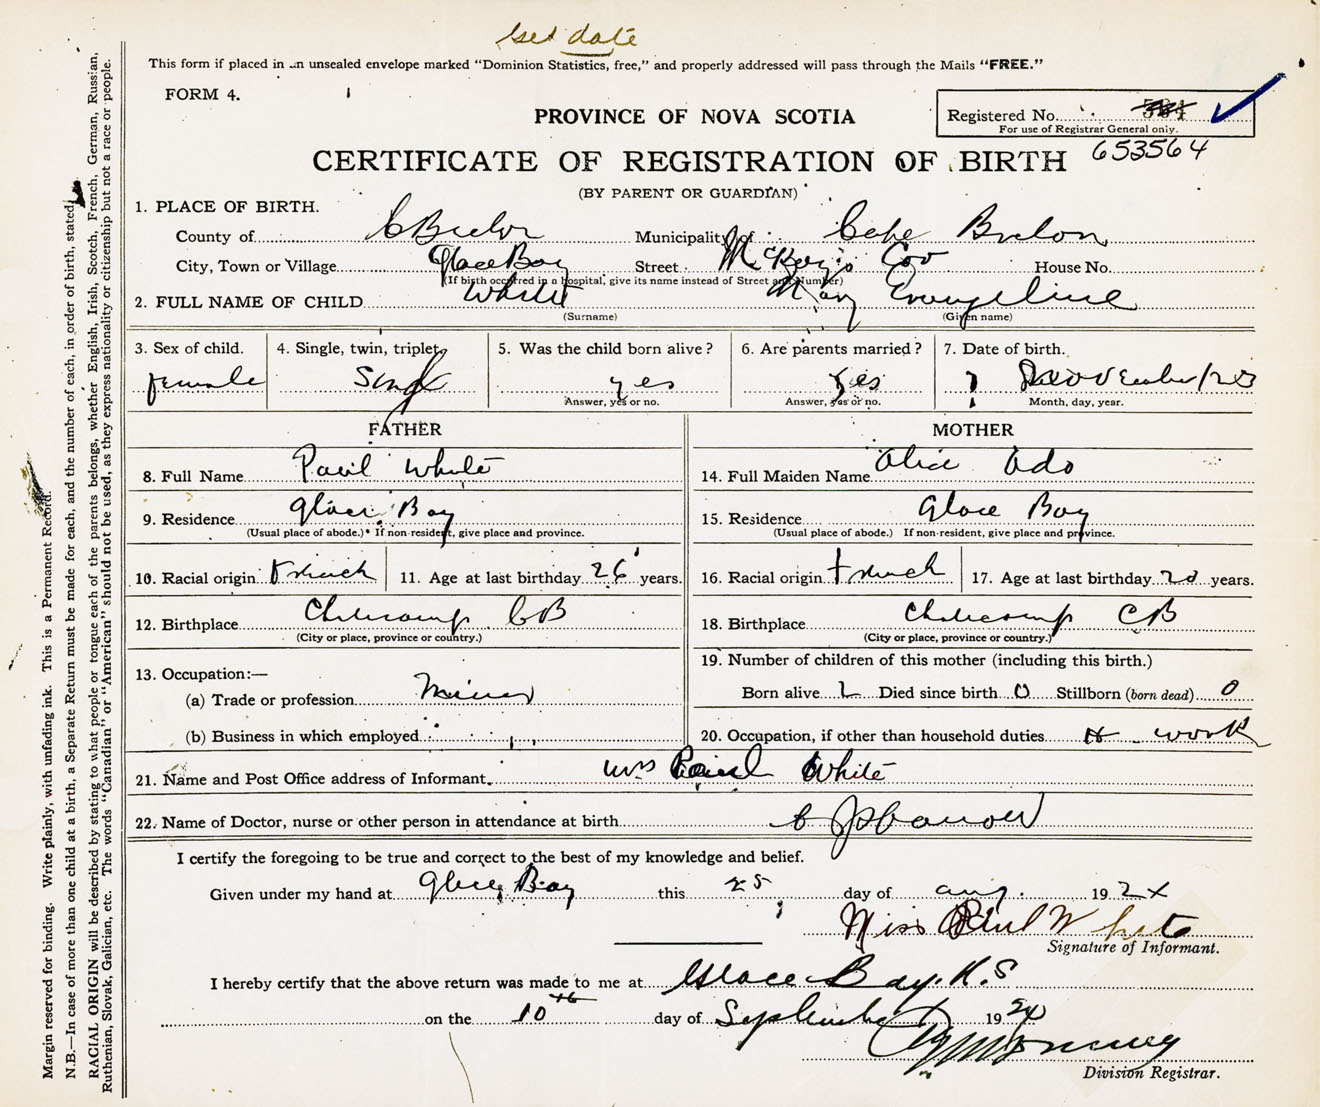 Get date
This form if placed in an unsealed envelope marked "Dominion Statistics, free," and properly addressed will pass through the Mails "FREE."
FORM 4.
PROVINCE OF NOVA SCOTIA
Registered No.
For use of Registrar General only.
653564
CERTIFICATE OF REGISTRATION OF BIRTH
(BY PARENT OR GUARDIAN)
1. PLACE OF BIRTH.
County of C Breton Municipality of Cape Breton
City, Town or Village Glace Bay Street McKay's Cov House No.
(If birth occurred in a hospital, give its name instead of Street and Number)
2. FULL NAME OF CHILD White Mary Evangeline
(Surname) (Given name)
3. Sex of child. 4. Single, twin, triplet, 5. Was the child born alive? 6. Are parents married? 7. Date of birth.
female Single yes Yes ? November/23
Answer, yes or no. Answer, yes or no. Month, day, year.
FATHER
8. Full Name Paul White
9. Residence Glace Bay
(Usual place of abode.) If non-resident, give place and province.
10. Racial origin French 11. Age at last birthday 26 years.
12. Birthplace Cheticamp CB
(City or place, province or country.)
13. Occupation:—
(a) Trade or profession Miner
(b) Business in which employed
MOTHER
14. Full Maiden Name Alice
15. Residence Glace Bay
(Usual place of abode.) If non-resident, give place and province.
16. Racial origin French 17. Age at last birthday years.
18. Birthplace Cheticamp CB
(City or place, province or country.)
19. Number of children of this mother (including this birth.)
Born alive 2 Died since birth 0 Stillborn (born dead) 0
20. Occupation, if other than household duties H work
21. Name and Post Office address of Informant. Mrs Paul White
22. Name of Doctor, nurse or other person in attendance at birth
I certify the foregoing to be true and correct to the best of my knowledge and belief.
Given under my hand at Glace Bay this 25 day of Aug. 192
Miss Paul White
Signature of Informant.
I hereby certify that the above return was made to me at Glace Bay. N.S
on the 10th day of September 1924
Division Registrar.
Margin reserved for binding. Write plainly, with unfading ink. This is a Permanent Record.
N.B.—In case of more than one child at a birth, a Separate Return must be made for each, and the number of each, in order of birth, stated.
RACIAL ORIGIN will be described by stating to what people or tongue each of the parents belongs, whether English, Irish, Scotch, French, German, Russian,
Ruthenian, Slovak, Galician, etc. The words "Canadian" or "American" should not be used, as they express nationality or citizenship but not a race or people.